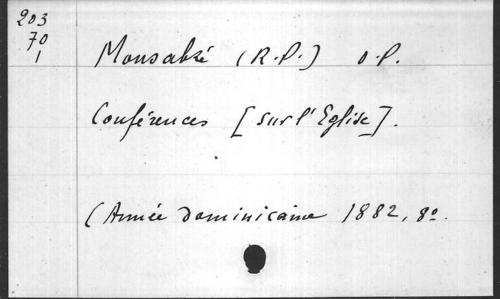 203
70
1
Monsabré (R.P.) o.p.
Conférences [sur l'Eglise].
(Année dominicaine 1882, 8º.